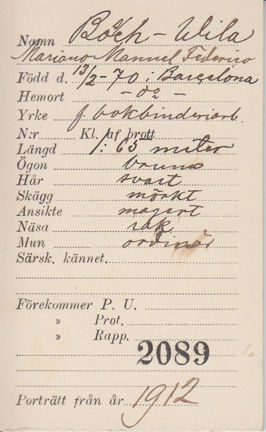 Namn Böch-Wila
Mariano Manuel Federico
Född d. 13/2-70 i Barcelona
Hemort -o2-
Yrke f. bokbinderiarb.
N:r Kl. af brott
Längd 1:65 meter
Ögon bruna
Hår svart
Skägg mörkt
Ansikte magert
Näsa rak
Mun ordinär
Särsk. kännet.
Förekommer P. U.
» Prot.
» Rapp.
2089
Porträtt från år 1912